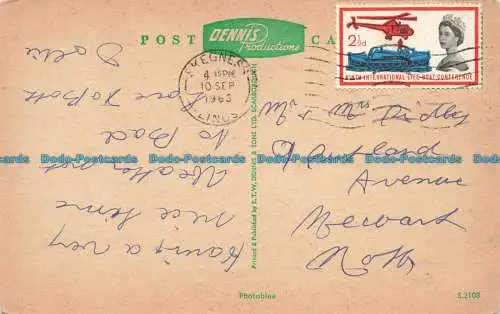 POST CARD
DENNIS
Productions
2½d
NINTH INTERNATIONAL LIFE-BOAT CONFERENCE
SKEGNESS
4 45PM
10 SEP
1963
LINCS
Having a very
nice time
Weather not
to Bad
Love to Both
Dollie
Mr & Mrs Ridley
Avenue
Newark
Notts
Printed & Published by E.T.W. DENNIS & SONS LTD., SCARBOROUGH
Photoblue
S.2108
Dodo-Postcards Dodo-Postcards Dodo-Postcards Dodo-Postcards Dodo-Postcards